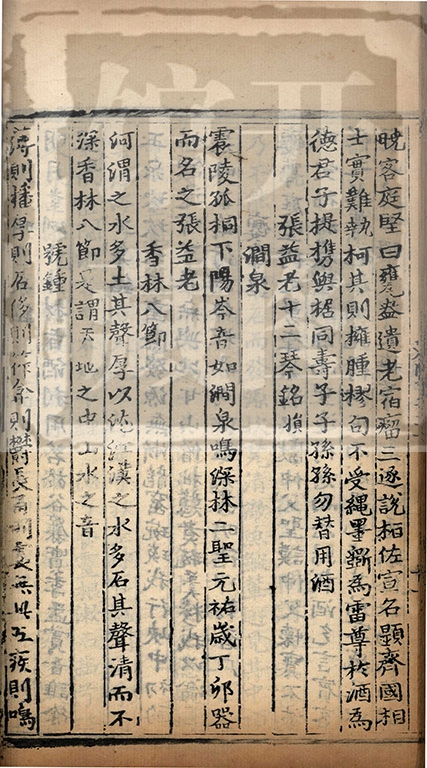 晚客庭堅曰甕盎遺老宿瘤三逐說相佐宣名顯齊國相
士實難執柯其則擁腫樛句不受繩墨斵為雷尊於酒為
德君子提携與椐同壽子子孫孫勿替用酒
張益老十二琴銘
澗泉
震陵孤桐下陽岑音如澗泉鳴深林二聖元祐歲丁卯器
而名之張益老
香林八節
河渭之水多土其聲厚以沈江漢之水多石其聲清而不
深香林八節是謂天地之中山水之音
號鍾
薄則播厚則石侈則筰弇則鬱長甬則震無此五疾則鳴